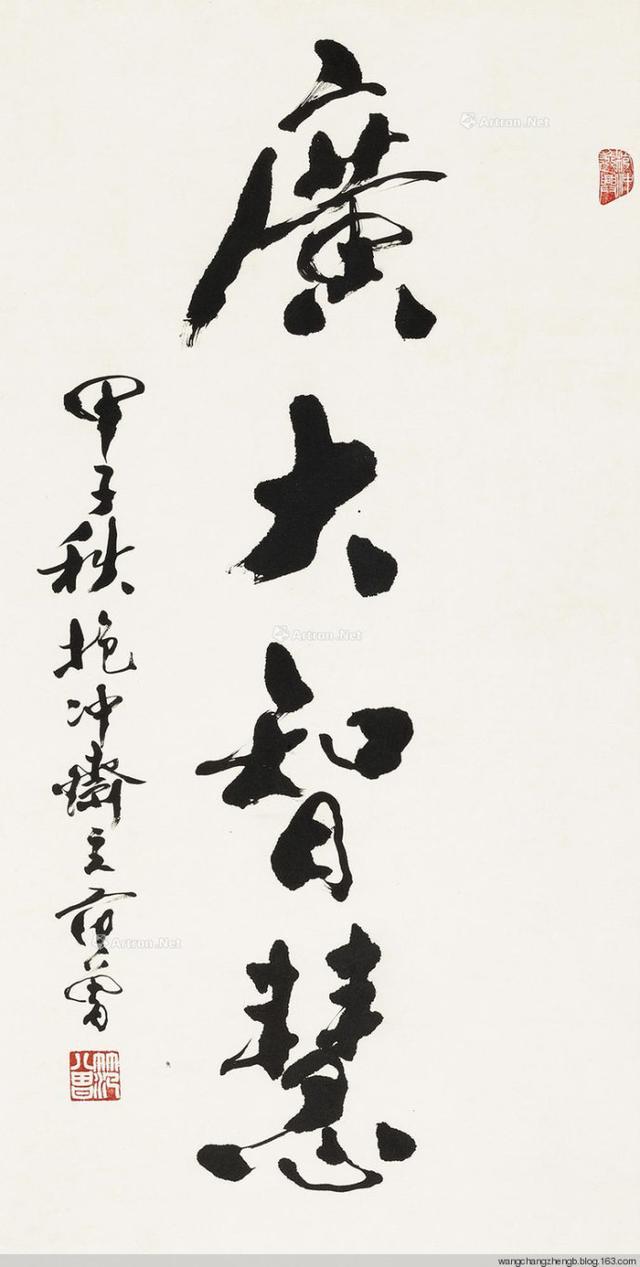 廣大智慧
甲子秋抱冲齋主范曾
Artron.Net
Artron.Net
Artron.Net
wangchangzhengb.blog.163.com